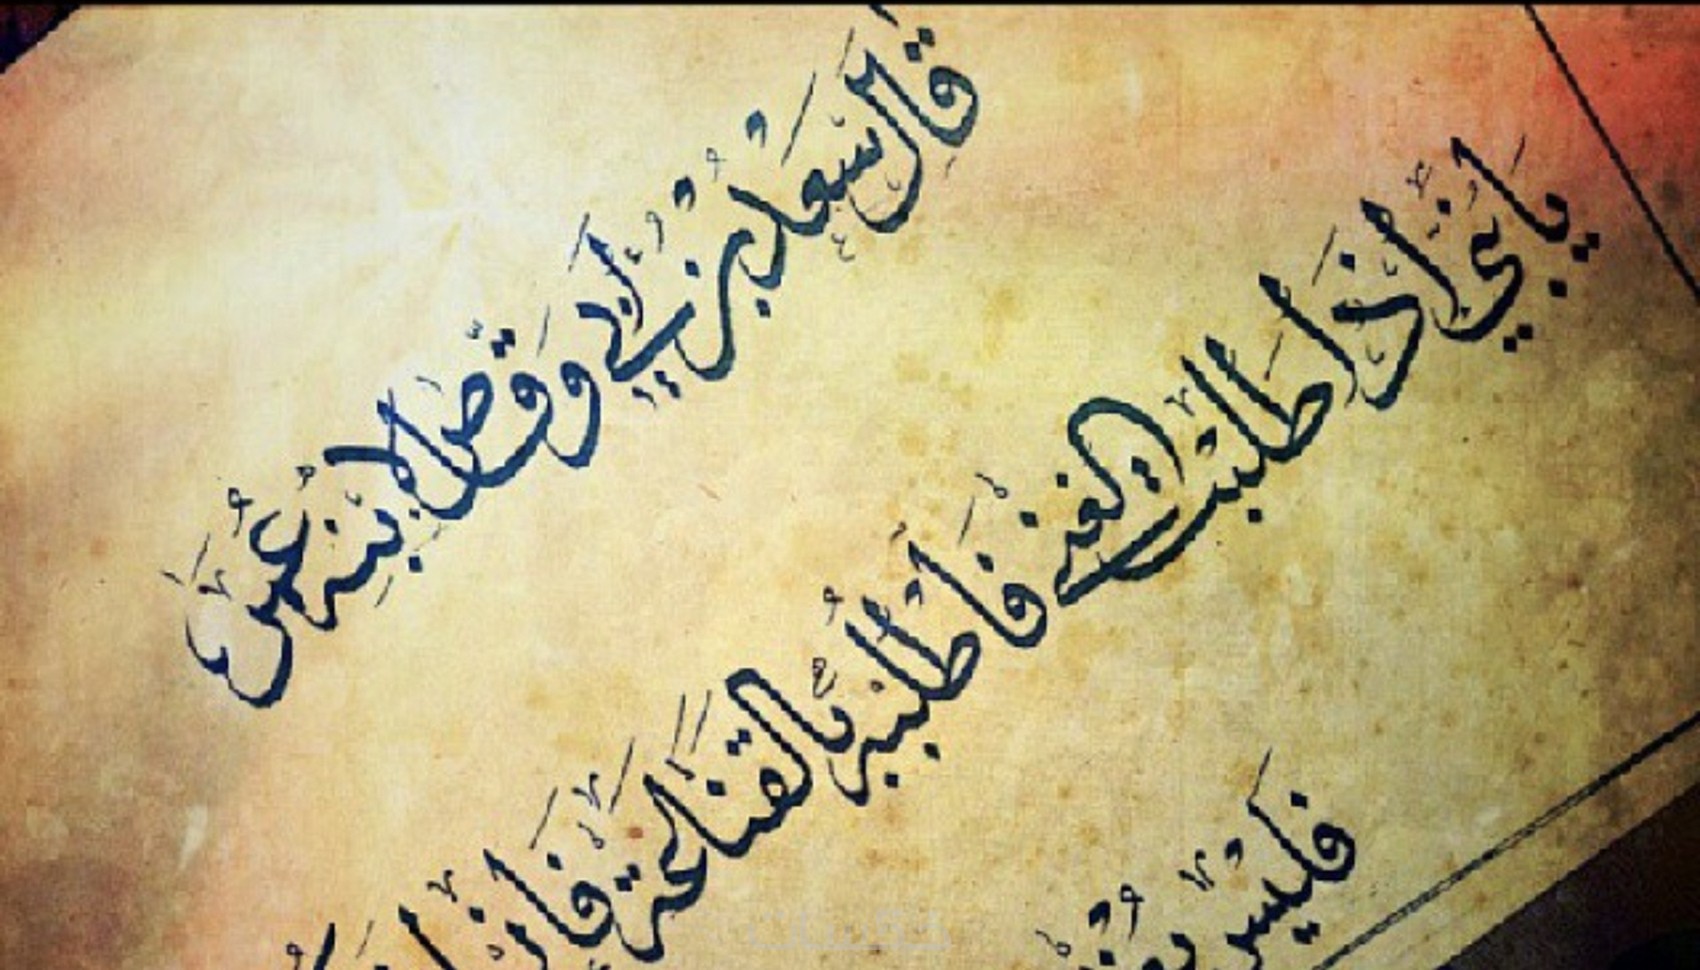 قال سعد بن أبي وقص لابنه عمر
يا بني إذا طلبت الغنى فاطلبه بالقناعة فإنها
فليس